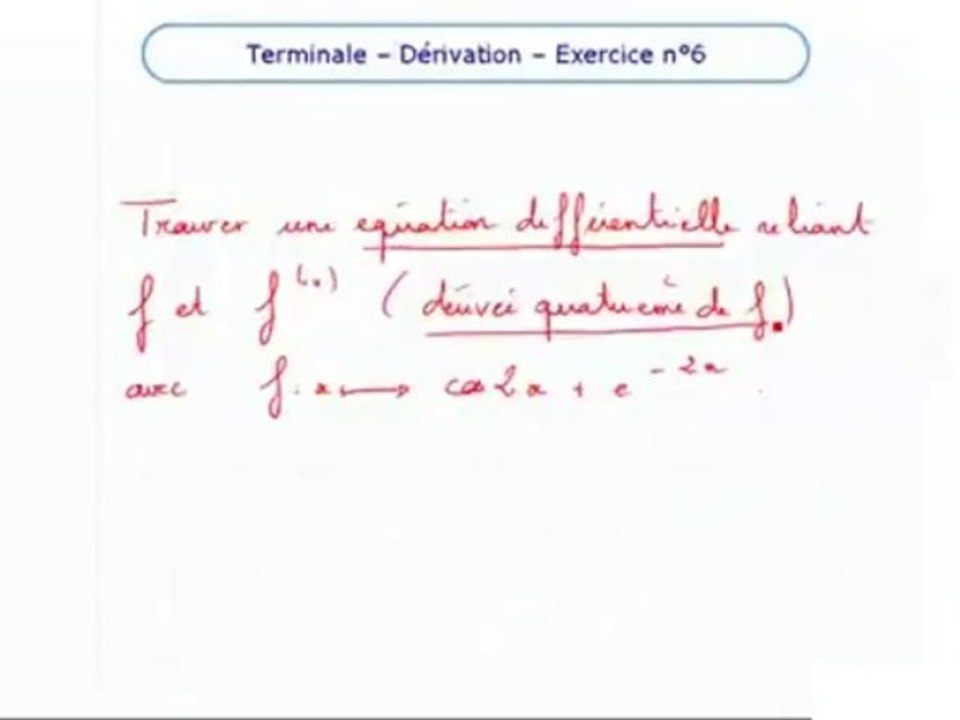 Terminale – Dérivation – Exercice n°6
Trouver une equation différentielle reliant
f et f⁽⁴⁾ ( dérivée quatrième de f.)
avec f: x ⟼ cos 2x + e⁻²ˣ.